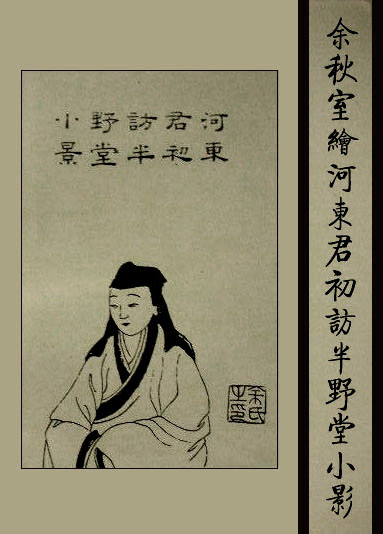 余秋室繪河東君初訪半野堂小影
河東
君初
訪半
野堂
小景
余氏